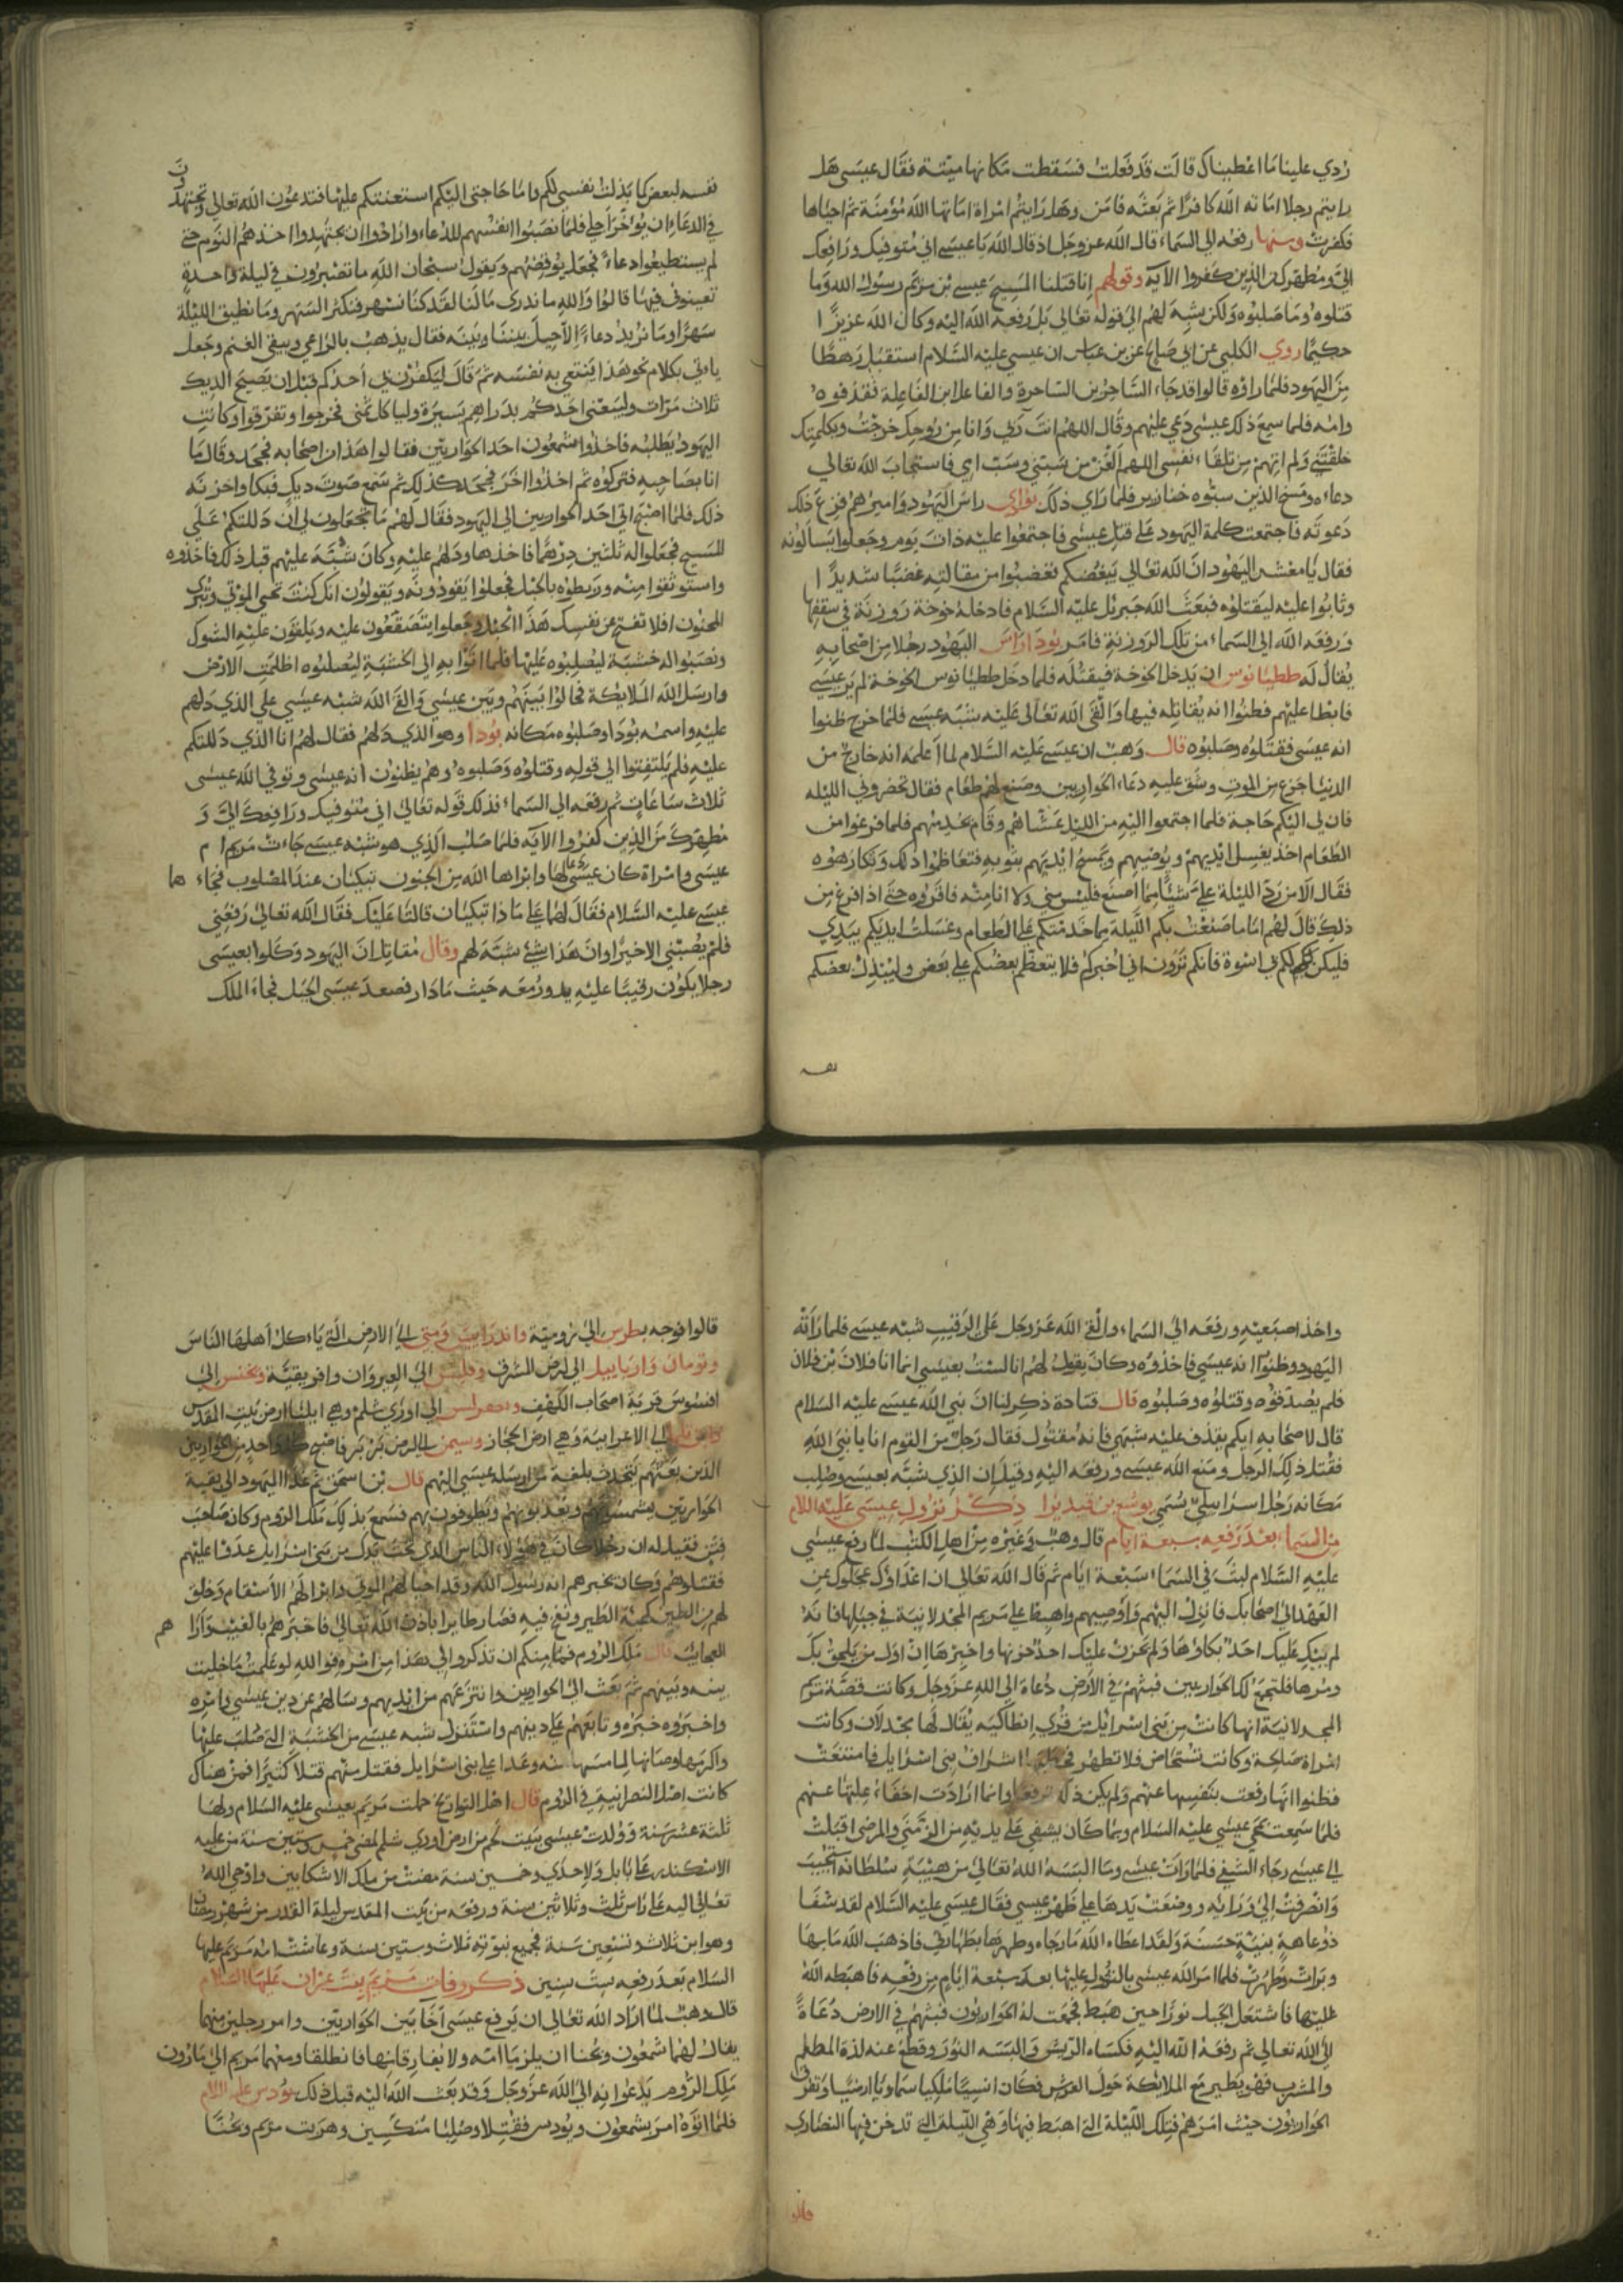 ردي علينا ما اعطيناك قالت قد فعلت فسقطت مكانها ميتة فقال عيسى هل
رايتم رجلا اماته الله كافرا ثم بعثه فامن وهل رايتم امراة اماتها الله مؤمنة ثم احياها
فكفرت ومنها رفعه الى السماء قال الله عز وجل اذ قال الله يا عيسى اني متوفيك ورافعك
الي ومطهرك من الذين كفروا الآية وقولهم انا قتلنا المسيح عيسى بن مريم رسول الله وما
قتلوه وما صلبوه ولكن شبه لهم الى قوله تعالى بل رفعه الله اليه وكان الله عزيزا
حكيما روي الكلبي عن ابي صالح عن بن عباس ان عيسى عليه السلام استقبل رهطا
من اليهود فلما راوه قالوا قد جاء الساحر بن الساحرة والفاعل ابن الفاعلة فقذفوه
وامه فلما سمع ذلك عيسى دعي عليهم وقال اللهم انت ربي وانا من روحك خرجت وبكلمتك
خلقتني ولم اتهم من تلقاء نفسي اللهم العن من سبني وسب امي فاستجاب الله تعالى
دعاءه ومسخ الذين سبوه خنازير فلما راى ذلك راس اليهود واميرهم فزع ذلك
دعوته فاجتمعت كلمة اليهود على قتل عيسى فاجتمعوا عليه ذات يوم وجعلوا يسالونه
فقال يا معشر اليهود ان الله تعالى يبغضكم فغضبوا من مقالته غضبا شديدا
وثابوا عليه ليقتلوه فبعث الله جبريل عليه السلام فادخله خوخة روزنة في سقفها
ورفعه الله الى السماء من تلك الروزنة فامر يودا راس اليهود رجلا من اصحابه
يقال له ططيانوس ان يدخل الخوخة فيقتله فلما دخل ططيانوس الخوخة لم ير عيسى
فابطا عليهم فظنوا انه يقاتله فيها والقى الله تعالى عليه شبه عيسى فلما خرج ظنوا
انه عيسى فقتلوه وصلبوه قال وهب ان عيسى عليه السلام لما اعلمه انه خارج من
الدنيا جزع من الموت وشق عليه دعاء الحواريين وصنع لهم طعام فقال تحضروني الليلة
فان لي اليكم حاجة فلما اجتمعوا اليه من الليل عشاهم وقام يخدمهم فلما فرغوا من
الطعام اخذ يغسل ايديهم ويوضيهم ويمسح ايديهم بثوبه فتعاظموا ذلك وتكارهوه
فقال الا من رد الليلة علي شيئا مما اصنع فليس مني ولا انا منه فاقروه حتى اذا فرغ من
ذلك قال لهم اما ما صنعت بكم الليلة مما خدمتكم على الطعام وغسلت ايديكم بيدي
فليكن لكم بي اسوة فانكم ترون اني اخيركم فلا يتعظم بعضكم على بعض وليبذل بعضكم
نفسه
نفسه لبعض كما بذلت نفسي لكم واما حاجتي اليكم استعنتكم عليها فتدعون الله تعالى وتجتهدون
في الدعاء ان يؤخر اجلي فلما نصبوا انفسهم للدعاء وارادوا ان يجتهدوا اخذهم النوم حتى
لم يستطيعوا دعاء فجعل يوقضهم ويقول سبحان الله ما تصبرون في ليلة واحدة
تعينوني فيها قالوا والله ما ندري ما لنا لقد كنا نسهر فنكثر السهر وما نطيق الليلة
سهرا وما نريد دعاء الا حيل بيننا وبينه فقال يذهب بالراعي ويبقى الغنم وجعل
ياتي بكلام نحو هذا ينتعي به نفسه ثم قال ليكفرن بي احدكم قبل ان يصيح الديك
ثلاث مرات وليبعني احدكم بدراهم يسيرة وليا كل ثمني فخرجوا وتفرقوا وكانت
اليهود يطلبه فاخذوا شمعون احد الحواريين فقالوا هذا من اصحابه فجحد وقال ما
انا بصاحبه فتركوه ثم اخذوا اخر فجحد كذلك ثم سمع صوت ديك فبكا واحزنه
ذلك فلما اصبح اتى احد الحواريين الى اليهود فقال لهم ما تجعلون لي ان دللتكم على
المسيح فجعلوا له ثلثين درهما فاخذها ودلهم عليه وكان شبه عليهم قبل ذلك فاخذوه
واستوثقوا منه وربطوه بالحبل فجعلوا يقودونه ويقولون انك كنت تحيي الموتى وتبرى
المجنون افلا تفتح عن نفسك هذا الحبل وجعلوا يتصفعون عليه ويلقون عليه الشوك
ونصبوا له خشبة ليصلبوه عليها فلما اتوا به الى الخشبة ليصلبوه اظلمت الارض
وارسل الله الملايكة فحالوا بينهم وبين عيسى والقى الله شبه عيسى على الذي دلهم
عليه واسمه يودا وصلبوه مكانه يودا وهو الذي دلهم فقال لهم انا الذي دللتكم
عليه فلم يلتفتوا الى قوله وقتلوه وصلبوه وهم يظنون انه عيسى وتوفي الله عيسى
ثلاث ساعات ثم رفعه الى السماء فذلك قوله تعالى اني متوفيك ورافعك الي و
مطهرك من الذين كفروا الآية فلما صلب الذي هو شبه عيسى جاءت مريم ام
عيسى وامراة كان عيسى دعا لها وابراها الله من الجنون تبكيان عند المصلوب فجاءهما
عيسى عليه السلام فقال لهما على ما ذا تبكيان قالتا عليك فقال الله تعالى رفعني
فلم يصبني الا خيرا وان هذا شيء شبه لهم وقال مقاتل ان اليهود وكلوا بعيسى
رجلا يكون رقيبا عليه يدور معه حيث ما دار فصعد عيسى الجبل فجاء الملك
واخذ بضبعيه ورفعه الى السماء والقى الله عز وجل على الرقيب شبه عيسى فلما راته
اليهود وظنوا انه عيسى فاخذوه وكان يقول لهم انا لست بعيسى انما انا فلان بن فلان
فلم يصدقوه وقتلوه وصلبوه قال قتادة ذكر لنا ان نبي الله عيسى عليه السلام
قال لاصحابه ايكم يقذف عليه شبهي فانه مقتول فقال رجل من القوم انا يا نبي الله
فقتل ذلك الرجل ومنع الله عيسى ورفعه اليه وقيل ان الذي شبه بعيسى وصلب
مكانه رجل اسرائيلي يسمى يوشع بن قنديرا ذكر نزول عيسى عليه السلام
من السماء بعد رفعه سبعة ايام قال وهب وغيره من اهل الكتب لما رفع عيسى
عليه السلام لبث في السماء سبعة ايام ثم قال الله تعالى ان اعداؤك عجلوك عن
العهد الى اصحابك فانزل اليهم واوصيهم واهبط على مريم المجدلانية في جبلها فانه
لم يبك عليك احد بكاؤها ولم يحزن عليك احد حزنها واخبرها ان اول من يلحق بك
ومرها فلتجمع لك الحواريين فبثهم في الارض دعاة الى الله عز وجل وكانت قصة مريم
المجدلانية انها كانت من بني اسرائيل من قرى انطاكيه يقال لها مجدلان وكانت
امراة صالحة وكانت تستحاض فلا تطهر اشراف بني اسرايل فامتنعت
فظنوا انها رفعت بنفسها عنهم ولم يكن ذلك ترفعا وانما ارادت اخفاء علتها عنهم
فلما سمعت بمجي عيسى عليه السلام وبما كان يشفي على يديه من الزمنى والمرضى اقبلت
الى عيسى رجاء الشفي فلما رات عيسى وما البسه الله تعالى من هيبة سلطانه استحييت
وانصرفت الى ورايه ووضعت يدها على ظهر عيسى فقال عيسى عليه السلام لقد شفا
ذو عاهة بنية حسنة ولقد اعطاه الله ما رجاه وطهرها بطهارتي فاذهب الله ما بها
وبرات وطهرت فلما امر الله عيسى بالنزول عليها بعد سبعة ايام من رفعه فاهبطه الله
عليها فاشتعل الجبل نورا حين هبط فجمعت له الحواريون فبثهم في الارض دعاة
الى الله تعالى ثم رفعه الله اليه فكساه الريش والبسه النور وقطع عنه لذة المطعم
والمشرب فهو يطير مع الملائكة حول العرش فكان انسيا ملكيا سماويا ارضيا وتفرق
الحواريون حيث امرهم فتلك الليلة التي اهبط فيها وهي الليلة التي تدخن فيها النصارى
قالوا
قالوا فوجه بطرس الى رومية واندراييس ومتى الى الارض التي ياءكل اهلها الناس
وتومان الى ارض الشرق وفيلبس الى القيروان وافريقية ويحنس الى
افسوس قرية اصحاب الكهف الى اورى شلم وهي ايليا ارض بيت المقدس
الى الاعرابية وهي ارض الحجاز وسيمن الى ارض بربر فاصبح كل واحد من الحواريين
الذين بعثهم يتحدث بلغة من ارسله عيسى اليهم قال بن اسحق ثم عدا اليهود الى بقية
الحواريين يشمسونهم ويعذبونهم ويطوفون بهم فسمع بذلك ملك الروم وكان صاحب
فقيل له ان رجلا كان في هؤلاء الناس الذي تحت يدك من بني اسرايل عدوا عليهم
فقتلوهم وكان يخبرهم انه رسول الله وقد احيا لهم الموتى وابرا لهم الاسقام وخلق
لهم من الطين كهيئة الطير ونفخ فيه فصار طايرا باذن الله تعالى فاخبرهم بالغيب واراهم
العجايب قال ملك الروم فما منعكم ان تذكروا لي هذا من امره فوالله لو علمت ما خليت
بينه وبينهم ثم بعث الى الحواريين وانتزعهم من ايديهم وسالهم عن دين عيسى وامره
واخبروه خبره وتابعهم على دينهم واستنزل شبه عيسى من الخشبة التي صلب عليها
واكرمها وصانها لما مسها منه وعدا على بني اسرايل فقتل منهم قتلا كثيرا فمن هناك
كانت اصل النصرانية في الروم قال اهل التواريخ حملت مريم بعيسى عليه السلام ولها
ثلثة عشر سنة وولدت عيسى ببيت لحم من ارض اورى شلم لمضي خمس وستين سنة من غلبه
الاسكندر على بابل ولاحدى وخمسين سنة مضت من ملك الاشكانيين واوحى الله
تعالى اليه على راس ثلث وثلاثين سنة ورفعه من بيت المقدس ليلة القدر من شهر رمضان
وهو ابن ثلاث وتسعين سنة فجميع نبوته ثلاث وستين سنة وعاشت امه مريم عليها
السلام بعد رفعه ست سنين ذكر وفات مريم بنت عمران عليها السلام
قال وهب لما اراد الله تعالى ان يرفع عيسى آخا بين الحواريين وامر رجلين منهما
يقال لهما شمعون ويحنا ان يلزما امه ولا يفارقانها فانطلقا ومعهما مريم الى مارون
ملك الروم يدعوانه الى الله عز وجل وقد بعث الله اليه قبل ذلك يودس عليه السلام
فلما اتوه امر بشمعون ويودس فقتلا وصلبا منكسين وهربت مريم ويحنا